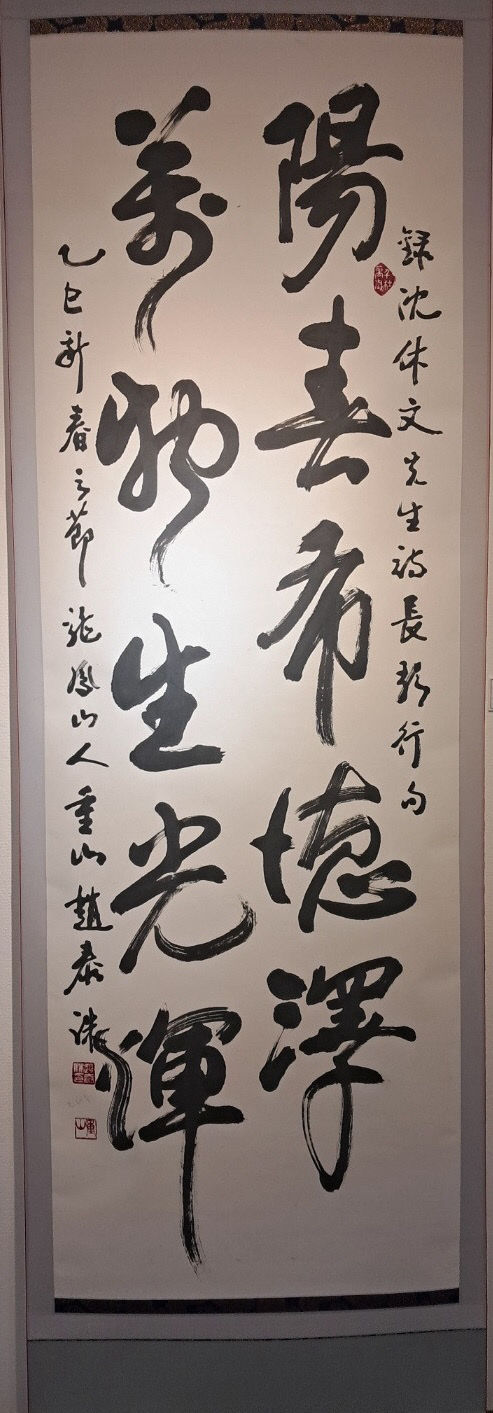 錄沈休文先生詩長歌行句
陽春希德澤
萬物生光輝
乙巳新春之節 龍鳳山人 重山 趙泰
重山